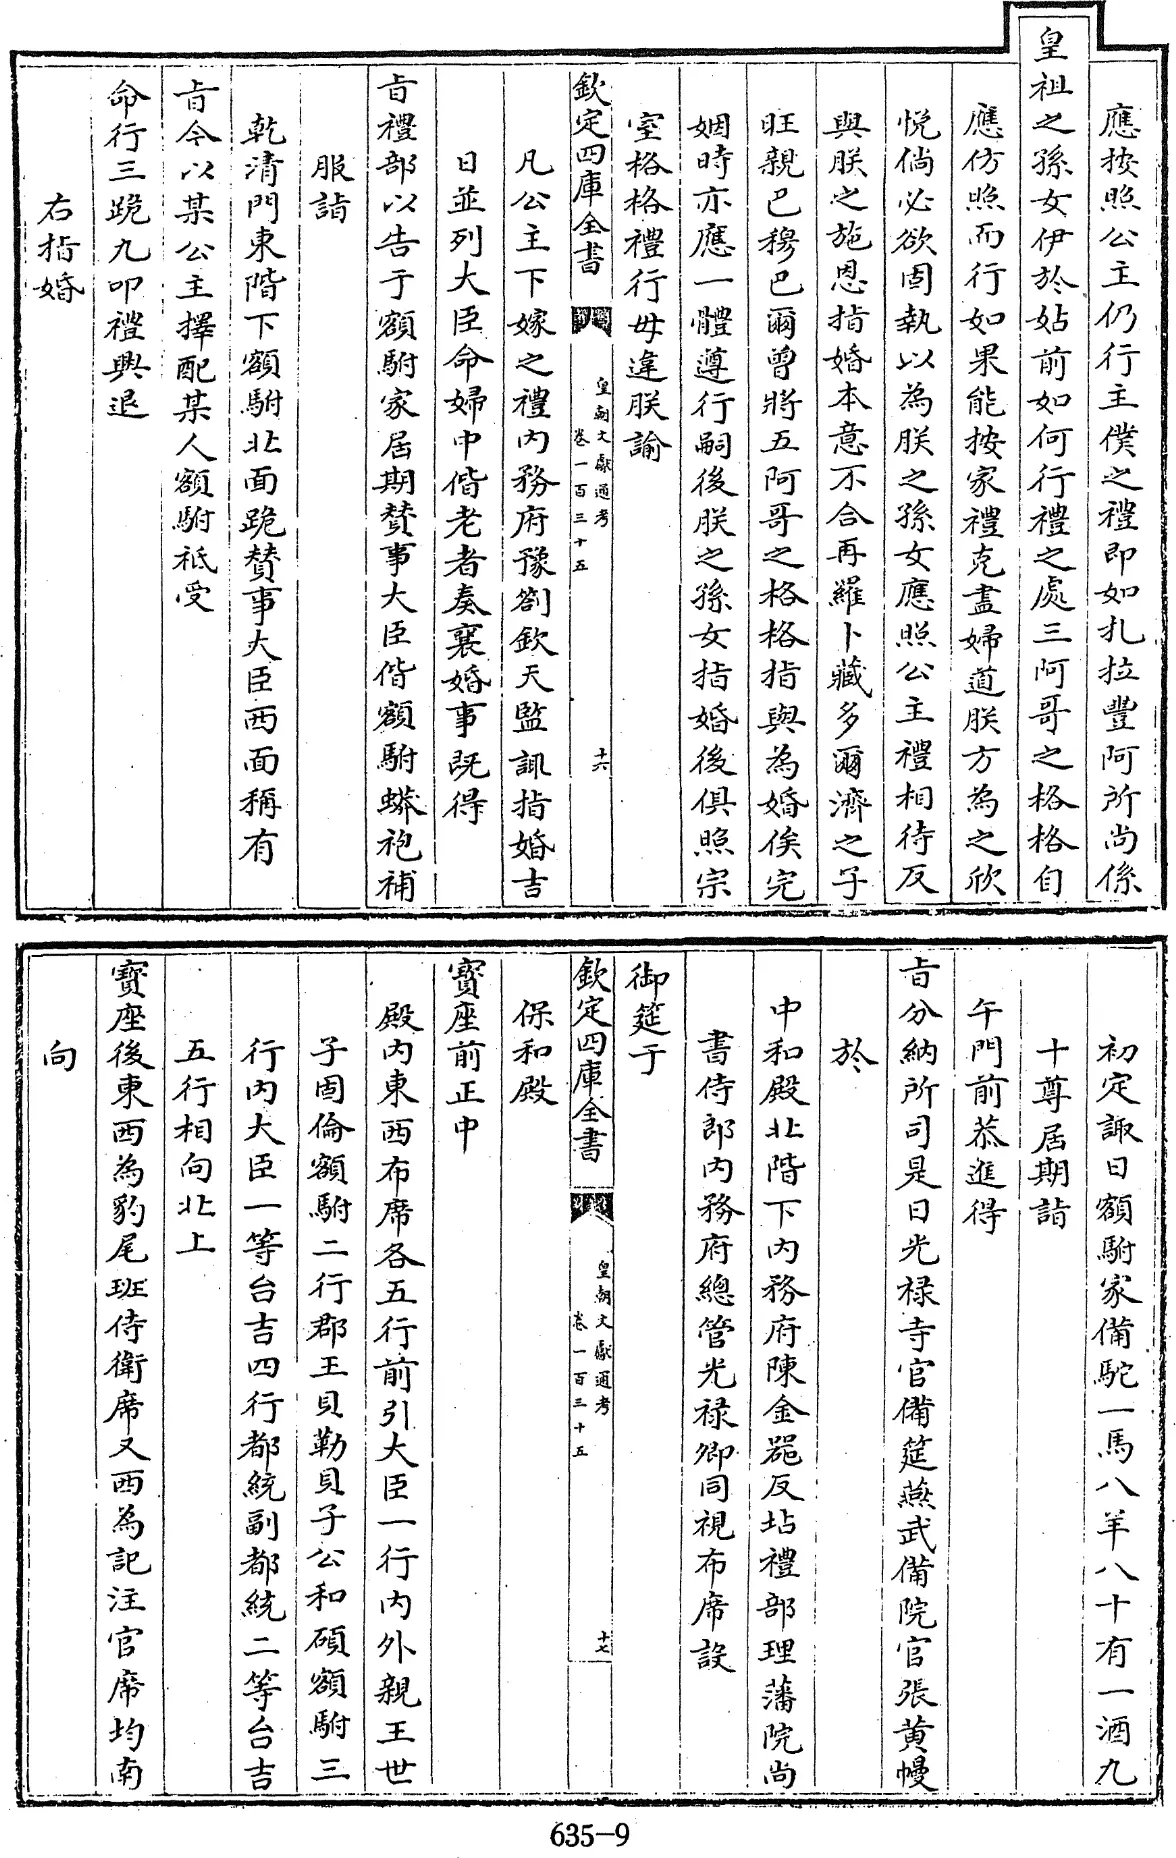 應按照公主仍行主僕之禮即如扎拉豐阿所尚係
皇祖之孫女伊於姑前如何行禮之處三阿哥之格格自
應仿照而行如果能按家禮克盡婦道朕方為之欣
悅倘必欲固執以為朕之孫女應照公主禮相待反
與朕之施恩指婚本意不合再羅卜藏多爾濟之子
旺親巴穆巴爾曾將五阿哥之格格指與為婚俟完
姻時亦應一體遵行嗣後朕之孫女指婚後俱照宗
室格格禮行毋違朕諭
欽定四庫全書
皇朝文獻通考
卷一百三十五
十六
凡公主下嫁之禮内務府豫劄欽天監諏指婚吉
日並列大臣命婦中偕老者奏襄婚事既得
旨禮部以告于額駙家居期贊事大臣偕額駙蟒袍補
服詣
乾清門東階下額駙北面跪贊事大臣西面稱有
旨今以某公主擇配某人額駙祇受
命行三跪九叩禮興退
右指婚
初定諏日額駙家備駝一馬八羊八十有一酒九
十尊居期詣
午門前恭進得
旨分納所司是日光禄寺官備筵燕武備院官張黄幔
於
中和殿北階下内務府陳金器反坫禮部理藩院尚
書侍郎内務府總管光禄卿同視布席設
御筵于
欽定四庫全書
皇朝文獻通考
卷一百三十五
十七
保和殿
寳座前正中
殿内東西布席各五行前引大臣一行内外親王世
子固倫額駙二行郡王貝勒貝子公和碩額駙三
行内大臣一等台吉四行都統副都統二等台吉
五行相向北上
寳座後東西為豹尾班侍衛席又西為記注官席均南
向
635-9